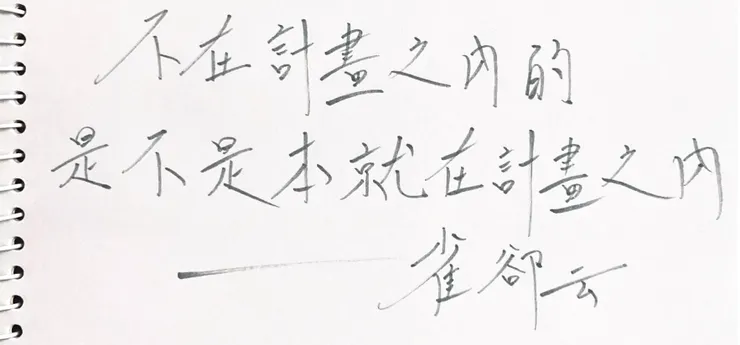 不在計畫之內的
是不是本就在計畫之內
——雀卻云